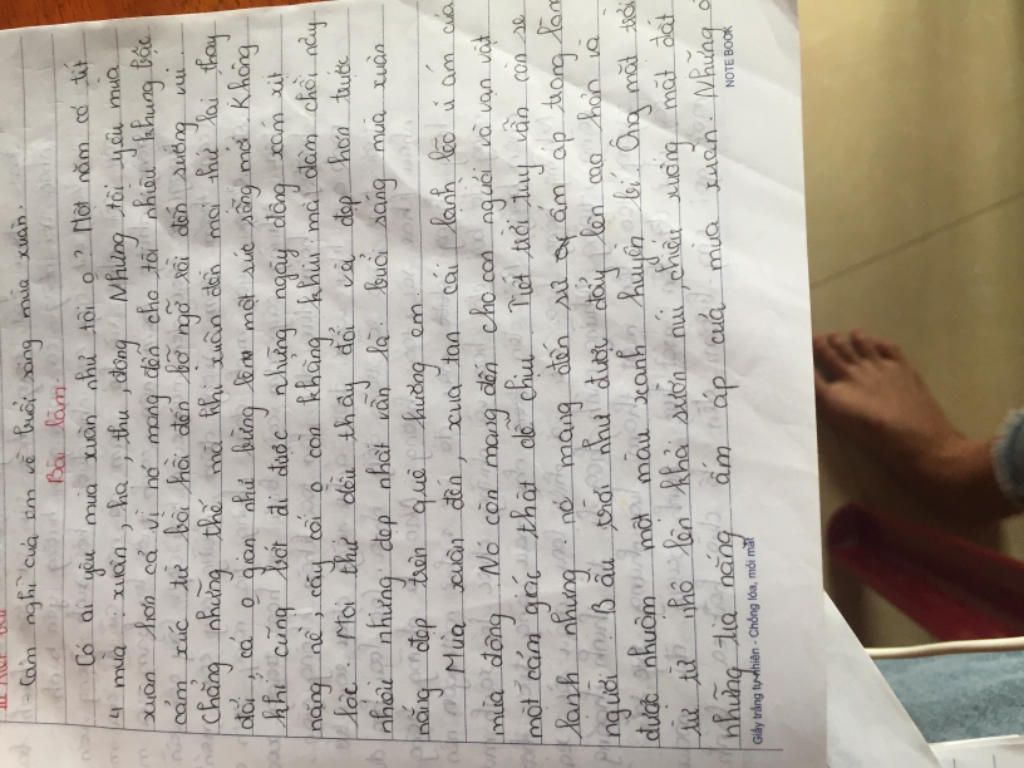 Cảm nghĩ của em về buổi sáng mùa xuân.
Bài làm
Có ai yêu mùa xuân như tôi ọ? Một năm có tứ
4 mùa xuân, hạ, thu, đông. Nhưng tôi yêu mùa
xuân hơn cả vì nó mang đến cho tôi nhiều khung bậc
cảm xúc từ bồi hồi đến bỡ ngỡ rồi đến sướng vui.
Chẳng những thế mà khi xuân đến mọi thứ lại thay
đổi, cả ọ gian như bừng lên một sức sống mới. Không
khí cũng bớt đi được những ngày đông xám xịt
nặng nề, cây cối ọ còn khẳng khiu mà đâm chồi nảy
lộc. Mọi thứ đều thay đổi và đẹp hơn trước
nhiều nhưng đẹp nhất vẫn là buổi sáng mùa xuân
nắng đẹp trên quê hương em.
Mùa xuân đến, xua tan cái lạnh lẽo ủ ám của
mùa đông. Nó còn mang đến cho con người và vạn vật
một cảm giác thật dễ chịu. Tiết trời tuy vẫn còn se
lạnh nhưng nó mang đến sự ấm áp trong lòng
người. Bầu trời như được đẩy lên cao hơn và
được nhuộm một màu xanh huyền bí. Ông mặt trời
từ từ nhô lên khỏi sườn núi, chiếu xuống mặt đất
những tia nắng ấm áp của mùa xuân. Những
Giấy trắng tự nhiên - Chống lóa, mỏi mắt
NOTEBOOK